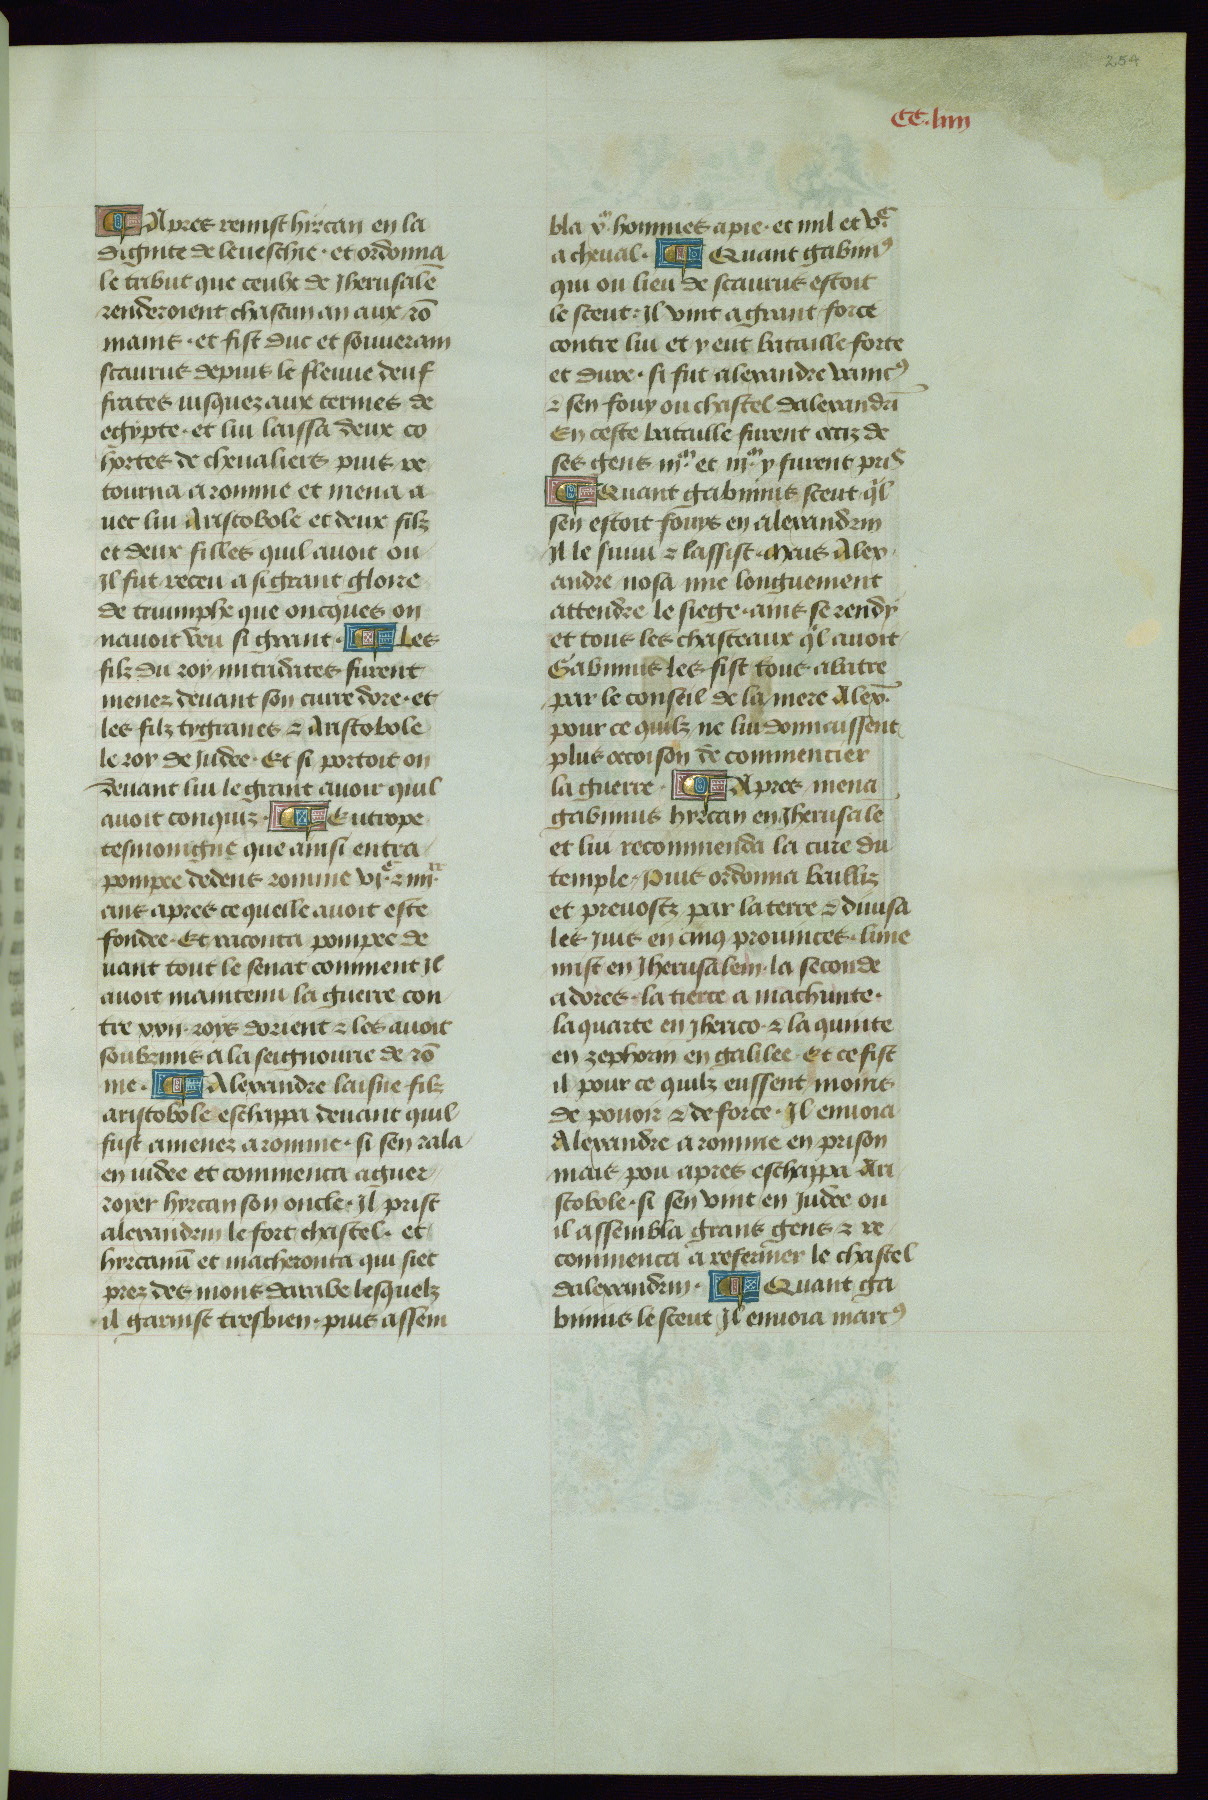 254
CC.liiii
Apres remist hyrcan en la
dignite de leueschie · et ordonna
le tribut que ceulx de Jherusalē
renderoient chascun an aux rō
mains · et fist duc et souuerain
scaurus depuis le fleuue deuf
frates iusquez aux termes de
egypte · et lui laissa deux co
hortes de cheualiers puis re
tourna a romme et mena a
uec lui Aristobole et deux filz
et deux filles quil auoit ou
Il fut receu a si grant gloire
de triumphe que oncques on
nauoit veu si grant · Les
filz du roy mitridates furent
menez deuant son curre dore · et
les filz tygranes ⁊ Aristobole
le roy de Judee · Et si portoit on
deuant lui le grant auoir quil
auoit conquiz · Eutrope
tesmoingne que ainsi entra
pompee dedens romme viᶜ ⁊ iiiiˣˣ
ans apres ce quelle auoit este
fondee · Et raconta pompee de
uant tout le senat comment Il
auoit maintenu la guerre con
tre xxii · roys dorient ⁊ les auoit
soubzmis a la seignourie de rō
me · Alexandre laisne filz
aristobole eschappa deuant quil
fust amenez a romme · si sen rala
en iudee et commenca a guer
royer hyrcan son oncle · Il prist
alexandrin le fort chastel · et
hyrcanū et macheronta qui siet
prez des mons darabe lesquelz
il garnist tresbien · puis assem
bla xᵐ hommes a pie · et mil et vᶜ
a cheual · Quant gabiniꝰ
qui ou lieu de scaurus estoit
le sceut : Il vint a grant force
contre lui et y eut bataille forte
et dure · si fut alexandre vaincꝰ
⁊ sen fouy ou chastel dalexandrī
En ceste bataille furent occiz de
ses gens iiiᵐ · et iiiᵐ · y furent pris
Quant gabinius sceut q̄l
sen estoit fouys en alexandrin
Il le suiui ⁊ lassist · Mais Alex
andre nosa mie longuement
attendre le siege · ains se rendy
et tous les chasteaux q̄l auoit
Gabinius les fist tous abatre
par le conseil de la mere Alex̄ ·
pour ce quilz ne lui donnaissent
plus occoison de commencier
la guerre · Apres mena
gabinius hyrcan en Jherusale
et lui recommenda la cure du
temple · Puis ordonna bailliz
et preuostz par la terre ⁊ diuisa
les juis en cinq prouinces · lune
mist en Jherusalem · la seconde
a dores · la tierce a machunte ·
la quarte en Jherico · ⁊ la quinte
en zephorin en galilee · Et ce fist
il pour ce quilz eussent moins
de pouoir ⁊ de force · Il enuoia
Alexandre a romme en prison
mais pou apres eschappa Ari
stobole · si sen vint en Judee ou
il assembla grans gens ⁊ re
commenca a refermer le chastel
dalexandrin · Quant ga
binius le sceut Il enuoia marcꝰ